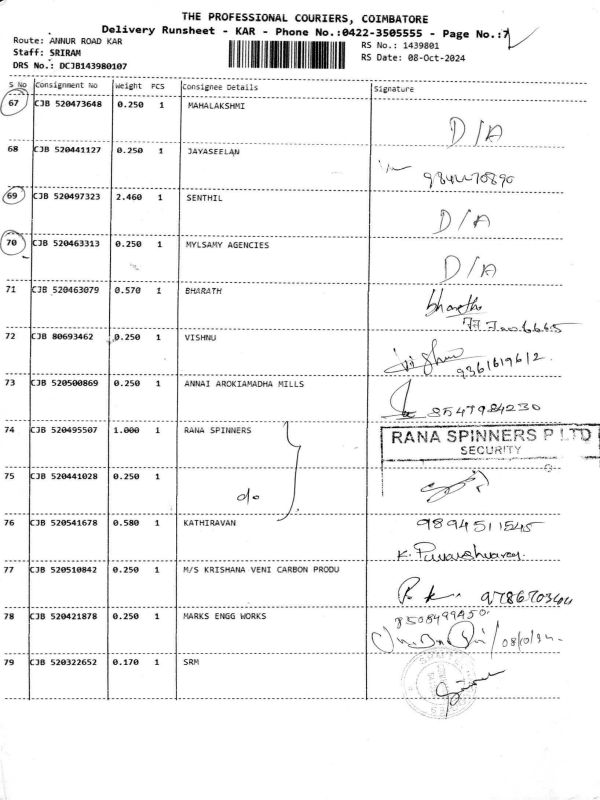 THE PROFESSIONAL COURIERS, COIMBATORE
Delivery Runsheet - KAR - Phone No.:0422-3505555 - Page No.:7
Route: ANNUR ROAD KAR
RS No.: 1439801
Staff: SRIRAM
RS Date: 08-Oct-2024
DRS No.: DCJB143980107
S No Consignment No Weight PCS Consignee Details Signature
67 CJB 520473648 0.250 1 MAHALAKSHMI
D/A
68 CJB 520441127 0.250 1 JAYASEELAN
69 CJB 520497323 2.460 1 SENTHIL
D/A
70 CJB 520463313 0.250 1 MYLSAMY AGENCIES
D/A
71 CJB 520463079 0.570 1 BHARATH
bharath
72 CJB 80693462 0.250 1 VISHNU
9361619612
73 CJB 520500869 0.250 1 ANNAI AROKIAMADHA MILLS
8547984230
74 CJB 520495507 1.000 1 RANA SPINNERS
RANA SPINNERS P LTD
SECURITY
75 CJB 520441028 0.250 1
do
76 CJB 520541678 0.580 1 KATHIRAVAN
9894511545
77 CJB 520510842 0.250 1 M/S KRISHANA VENI CARBON PRODU
78 CJB 520421878 0.250 1 MARKS ENGG WORKS
8508499450
79 CJB 520322652 0.170 1 SRM